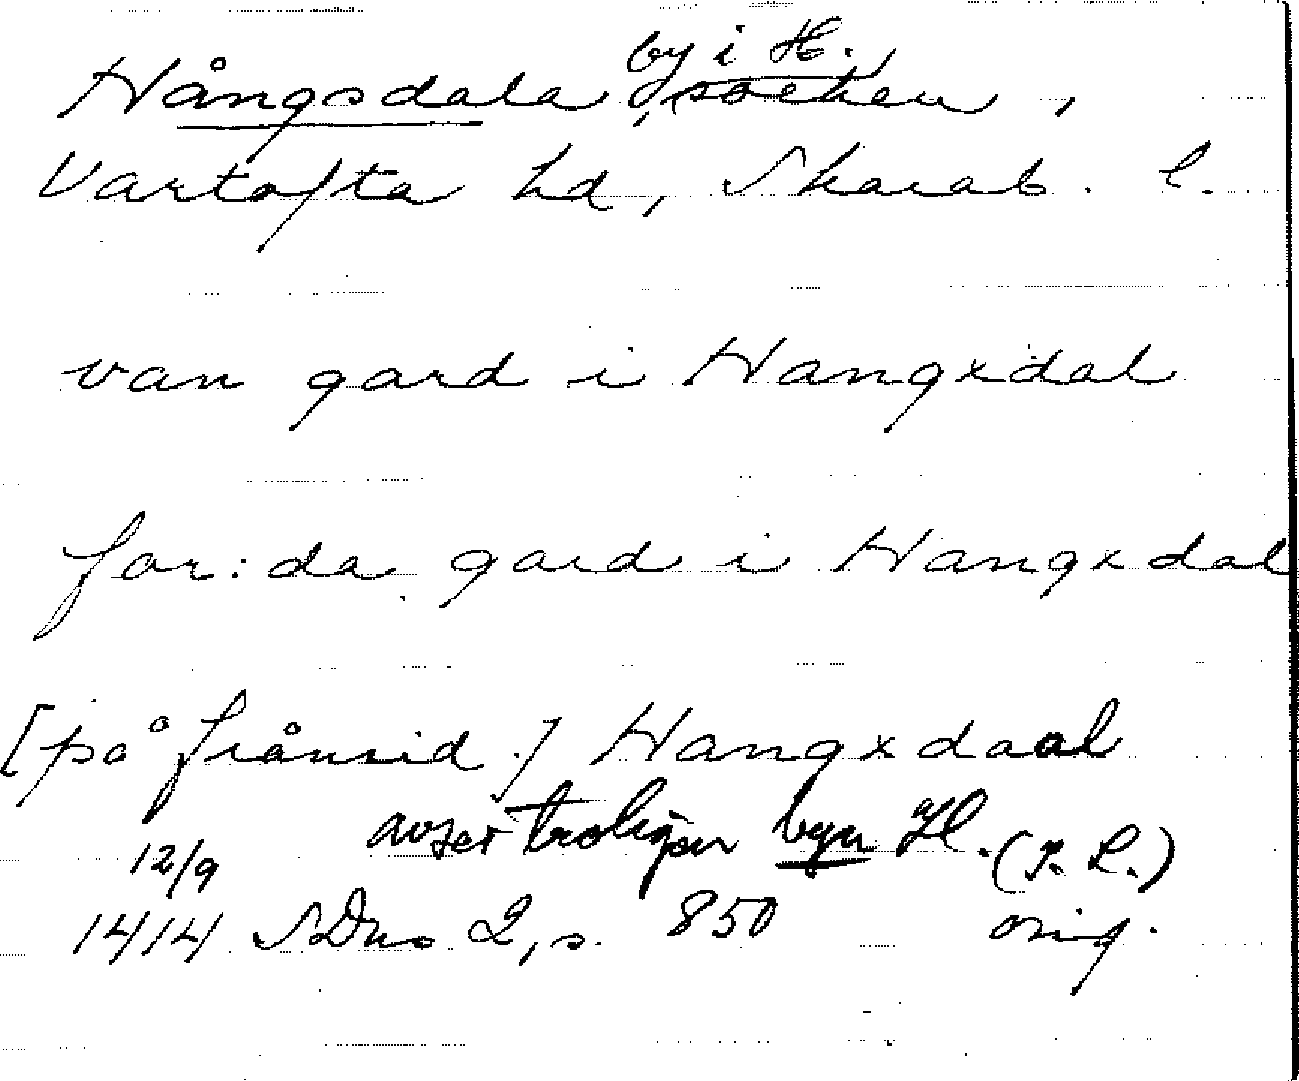 by i H.
Hångsdala, socken,
Vartofta hd, Skarab. l.
van gard i Hangxdal
for:da gard i Hangxdal
[på frånsid.] Hangxdaal
avser troligen byn H. (I. L.)
12/9
1414 SDns 2, s. 850 orig.